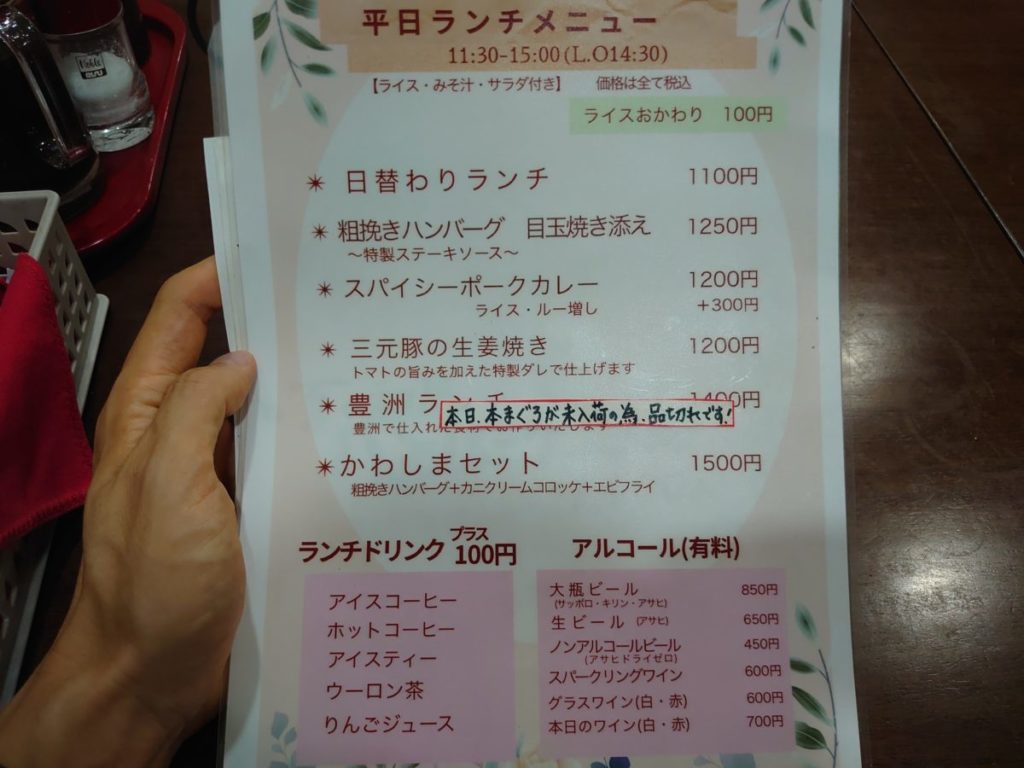 平日ランチメニュー
11:30-15:00(L.O14:30)
【ライス・みそ汁・サラダ付き】 価格は全て税込
ライスおかわり 100円
✴ 日替わりランチ 1100円
✴ 粗挽きハンバーグ 目玉焼き添え 1250円
～特製ステーキソース～
✴ スパイシーポークカレー 1200円
ライス・ルー増し +300円
✴ 三元豚の生姜焼き 1200円
トマトの旨みを加えた特製ダレで仕上げます
✴ 豊洲ランチ 1400円
本日、本まぐろが未入荷の為、品切れです!
豊洲で仕入れた
✴ かわしまセット 1500円
粗挽きハンバーグ+カニクリームコロッケ+エビフライ
ランチドリンク プラス 100円
アイスコーヒー
ホットコーヒー
アイスティー
ウーロン茶
りんごジュース
アルコール(有料)
大瓶ビール 850円
(サッポロ・キリン・アサヒ)
生ビール (アサヒ) 650円
ノンアルコールビール 450円
(アサヒドライゼロ)
スパークリングワイン 600円
グラスワイン(白・赤) 600円
本日のワイン(白・赤) 700円